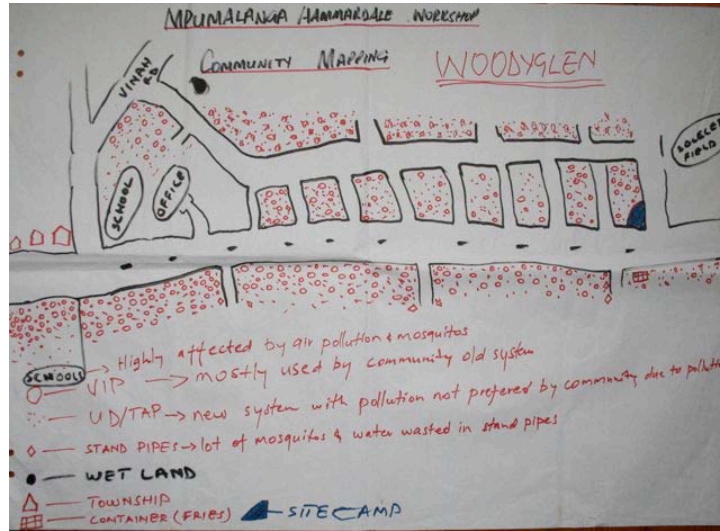 MPUMALANGA HAMMARDALE WORKSHOP
COMMUNITY MAPPING
WOODYGLEN
VINAH RD
SOCCER FIELD
SCHOOL
OFFICE
SCHOOLS → Highly affected by air pollution & mosquitos
VIP → mostly used by community old system
UD/TAP → new system with pollution not prefered by community due to
STAND PIPES → lot of mosquitos & water wasted in stand pipes
WET LAND
TOWNSHIP
CONTAINER (FRIES)
SITE CAMP